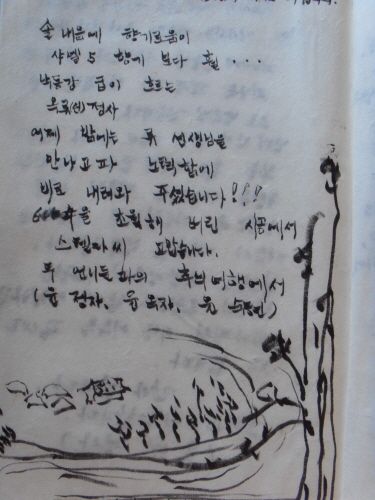 솔 내음에 향기로움이
샤넬 5 향에 보다 훨 · · ·
낙동강 굽이 흐르는
옥류(연)정사
어제 밤에는 류 선생님을
만나고파 노력함에
비로 내려와 주셨습니다!!!
을 초월해 버린 시공에서
스텔라씨 고맙습니다.
두 언니들과의 추억여행에서
(윤 정자, 윤 옥자, 윤